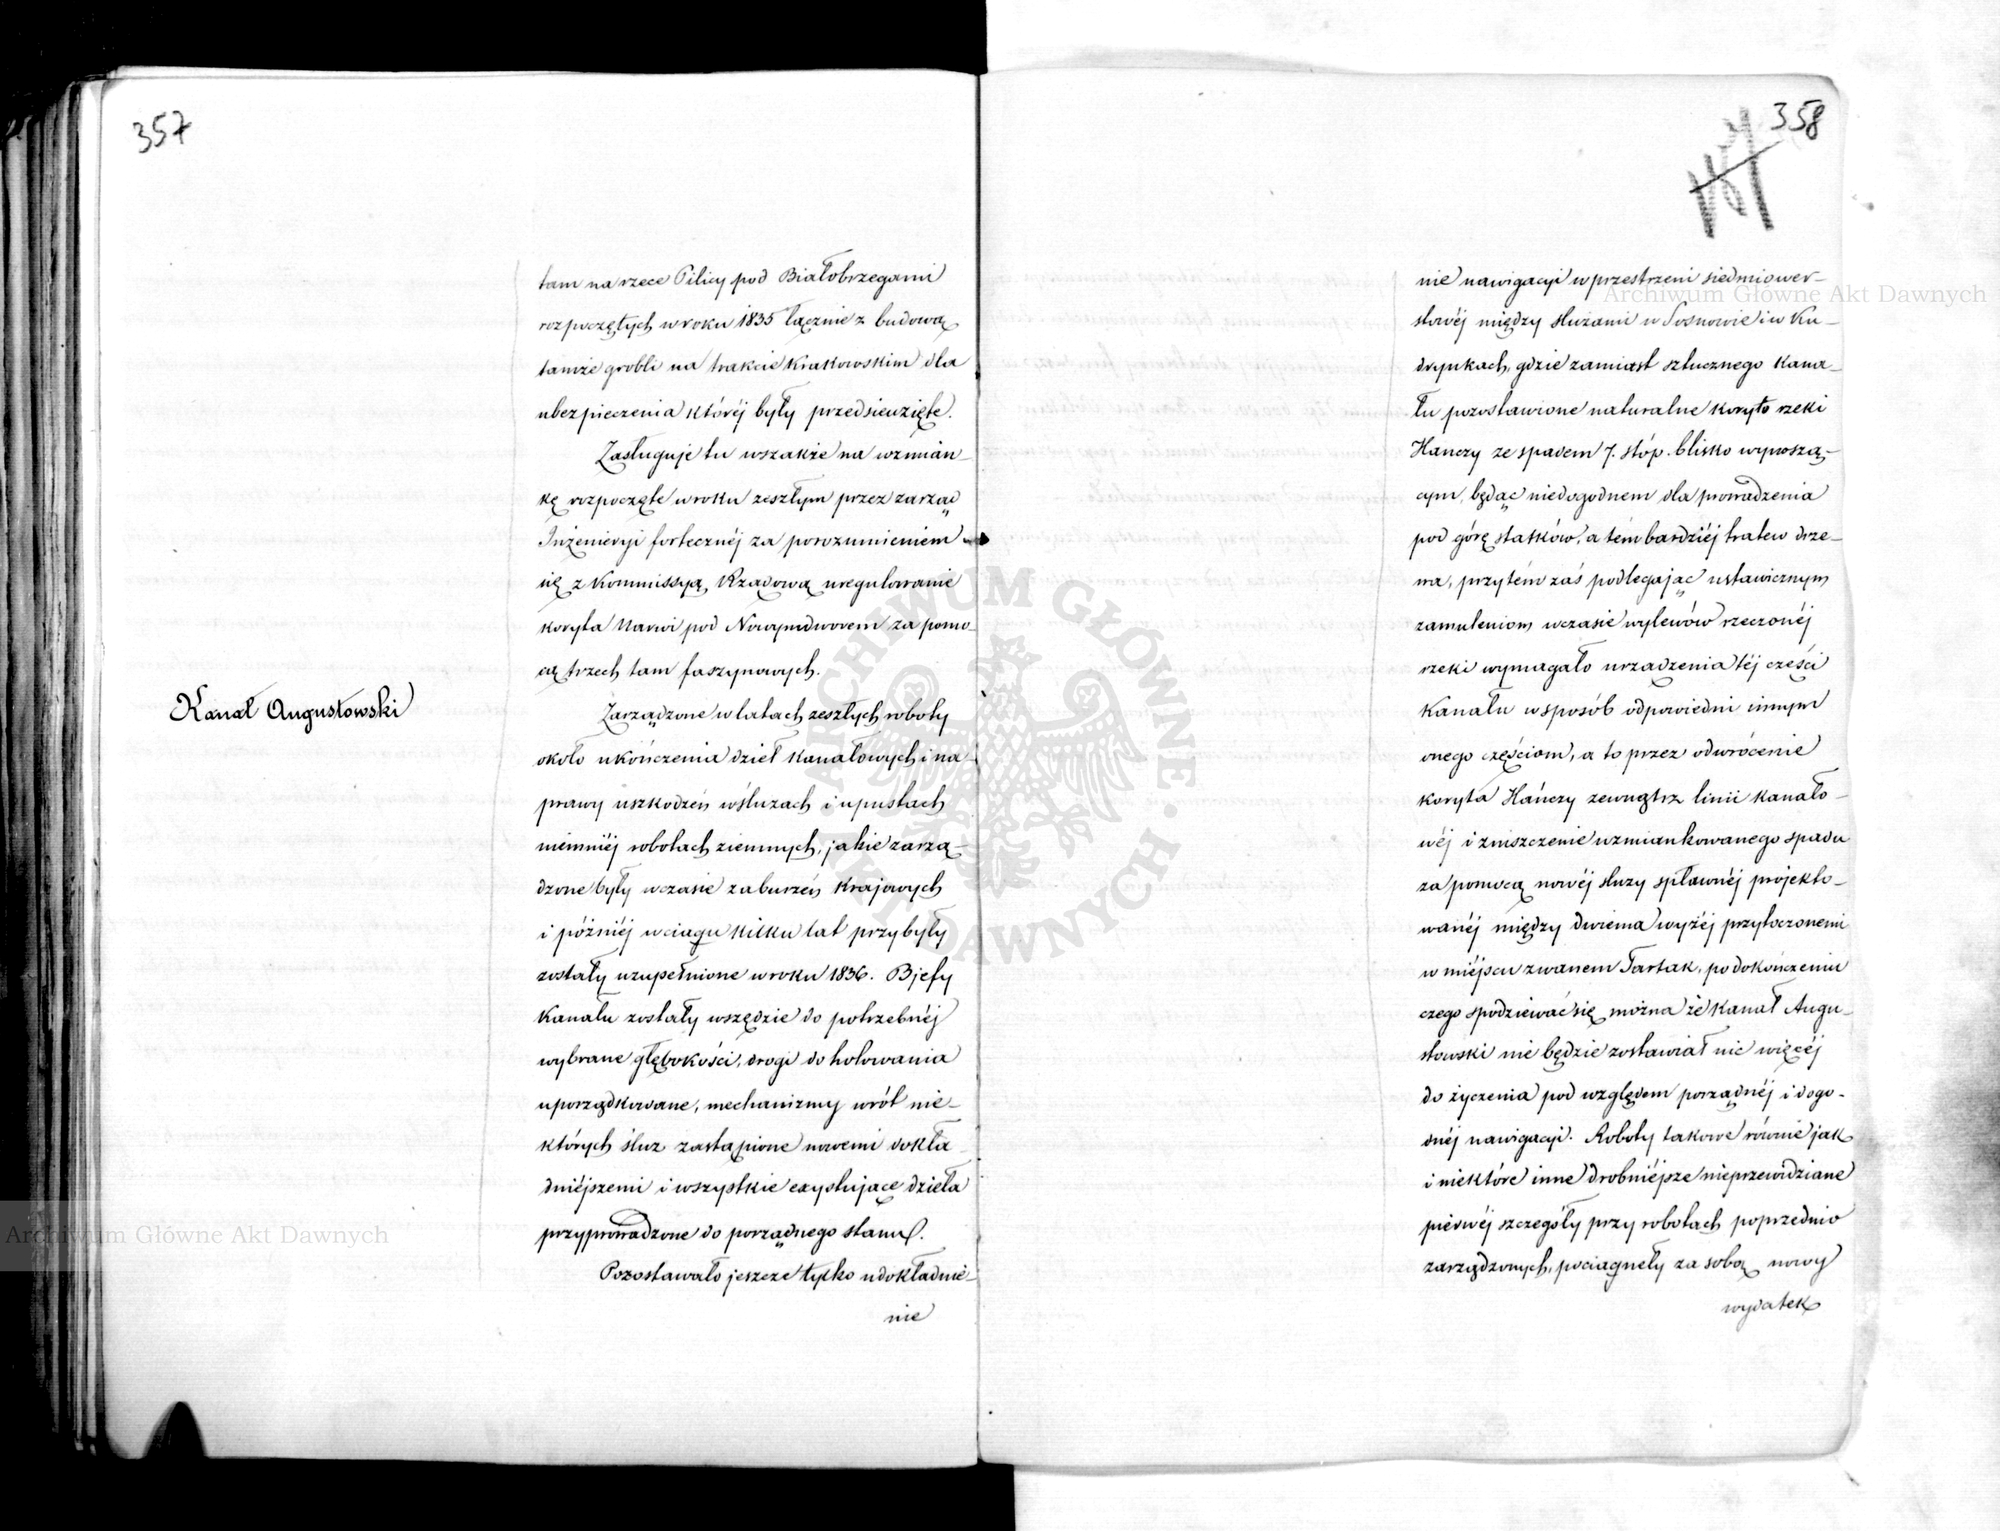 357
tam na rzece Pilicy pod Białobrzegami
rozpoczętych w roku 1835 łącznie z budową
tamże grobli na trakcie Krakowskim dla
ubezpieczenia któréj były przedsięwzięte.
Zasługuje tu wszakże na wzmian-
kę rozpoczęte w roku zeszłym przez zarząd
Inżenieryi fortecznéj za porozumieniem
się z Kommissyą Rządową uregulowanie
koryta Narwi pod Nowymdworem za pomo-
cą trzech tam faszynowych.
Kanał Augustowski
Zarządzone w latach zeszłych roboty
około ukończenia dzieł kanałowych i na-
prawy uszkodzeń w śluzach i upustach
niemniéj robotach ziemnych, jakie zarzą-
dzone były w czasie zaburzeń Krajowych
i późniéj w ciągu kilku lat przybyły
zostały uzupełnione w roku 1836. Bjefy
Kanału zostały wszędzie do potrzebnéj
wybrane głębokości, drogi do holowania
uporządkowane, mechanizmy wrót nie-
których śluz zastąpione nowemi dokła-
dniéjszemi i wszystkie exystujące dzieła
przyprowadzone do porządnego stanu.
Pozostawało jeszcze tylko udokładnie-
nie
358
nie nawigacyi w przestrzeni siedmiower-
stowéj między śluzami w Sosnowie i w Ku-
drynkach, gdzie zamiast sztucznego kana-
łu pozostawione naturalne koryto rzeki
Hańczy ze spadem 7. stóp. blisko wynoszą-
cym, będąc niedogodnem dla prowadzenia
pod górę statków, a tém bardziéj tratew drze-
wa, przytém zaś podlegając ustawicznym
zamuleniom w czasie wylewów rzeczonéj
rzeki wymagało urządzenia téj części
Kanału w sposób odpowiedni innym
onego częściom, a to przez odwrócenie
koryta Hańczy zewnątrz linii kanało-
wéj i zniszczenie wzmiankowanego spadu
za pomocą nowéj śluzy spławnéj projekto-
wanéj między dwiema wyżéj przytoczonemi
w miéjscu zwanem Tartak, po dokończeniu
czego spodziewać się można że Kanał Augu-
stowski nie będzie zostawiał nic więcéj
do życzenia pod względem porządnéj i dogo-
dnéj nawigacyi. Roboty takowe równie jak
i niektóre inne drobniéjsze nieprzewidziane
pierwéj szczegóły przy robotach poprzednio
zarządzonych, pociągnęły za sobą nowy
wydatek
Archiwum Główne Akt Dawnych
Archiwum Główne Akt Dawnych
ARCHIWUM GŁÓWNE AKT DAWNYCH